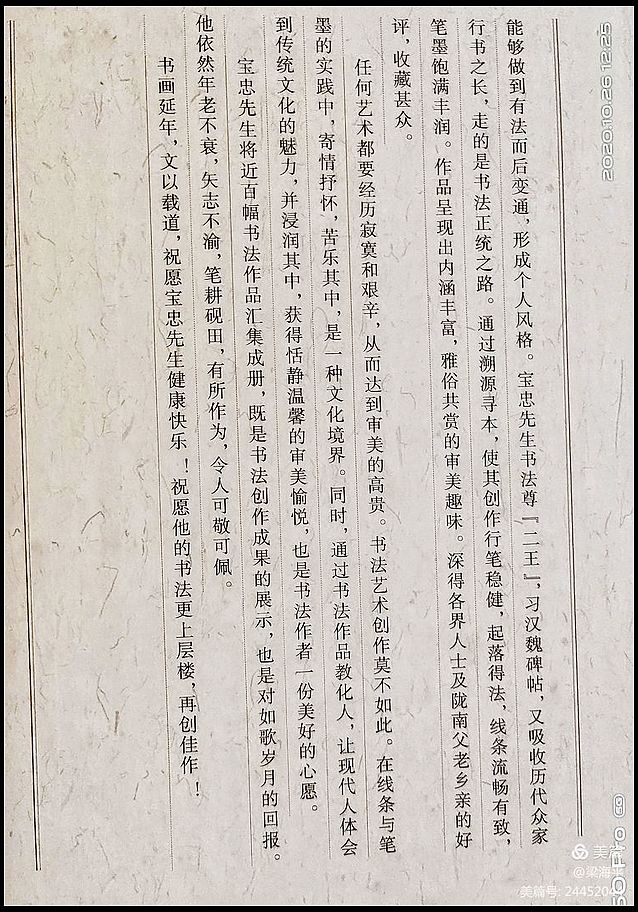 能够做到有法而后变通，形成个人风格。宝忠先生书法尊『二王』，习汉魏碑帖，又吸收历代众家
行书之长，走的是书法正统之路。通过溯源寻本，使其创作行笔稳健，起落得法，线条流畅有致，
笔墨饱满丰润。作品呈现出内涵丰富，雅俗共赏的审美趣味。深得各界人士及陇南父老乡亲的好
评，收藏甚众。
任何艺术都要经历寂寞和艰辛，从而达到审美的高贵。书法艺术创作莫不如此。在线条与笔
墨的实践中，寄情抒怀，苦乐其中，是一种文化境界。同时，通过书法作品教化人，让现代人体会
到传统文化的魅力，并浸润其中，获得恬静温馨的审美愉悦，也是书法作者一份美好的心愿。
宝忠先生将近百幅书法作品汇集成册，既是书法创作成果的展示，也是对如歌岁月的回报。
他依然年老不衰，矢志不渝，笔耕砚田，有所作为，令人可敬可佩。
书画延年，文以载道，祝愿宝忠先生健康快乐！祝愿他的书法更上层楼，再创佳作！
2020.10.26 12:25
美篇
@梁海平
美篇号: 2445204